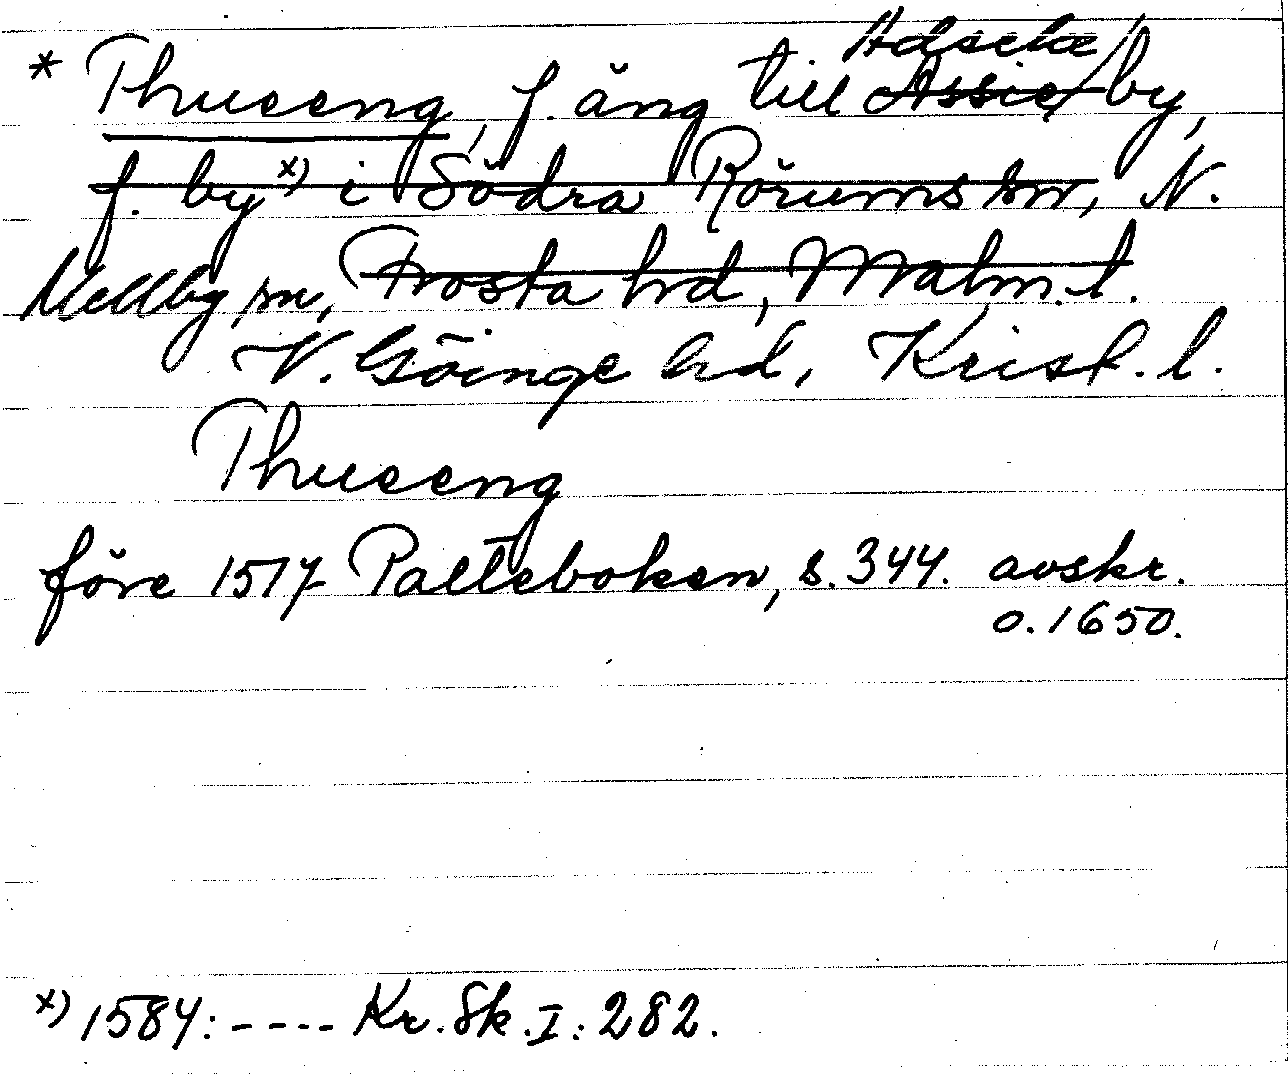 * Thuseng, f. äng till Assie by,
f. by x) i Södra Rörums sn, N.
Mellby sn, Frosta hrd, Malm. l.
N. Göinge hd, Krist. l.
Thuseng
före 1517 Palteboken, s. 344. avskr.
o. 1650.
x) 1584: ---- Kr. Sk. I: 282.